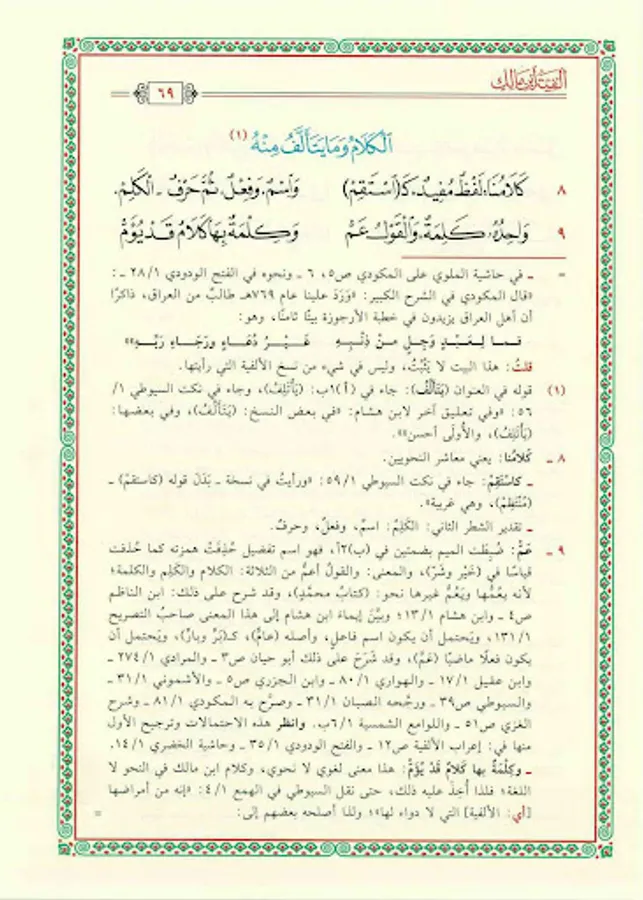 ألفية ابن مالك
٦٩
الْكَلَامُ وَمَا يَتَأَلَّفُ مِنْهُ (١)
٨ كَلَامُنَا: لَفْظٌ مُفِيدٌ، كَـ(اسْتَقِمْ) وَاسْمٌ، وَفِعْلٌ، ثُمَّ حَرْفٌ ـ الْكَلِمْ.
٩ وَاحِدُهُ: كَلِمَةٌ، وَالْقَوْلُ عَمّْ وَكِلْمَةٌ بِهَا كَلَامٌ قَدْ يُؤَمّْ
= ـ في حاشية الملوي على المكودي ص٥، ٦ ـ ونحوه في الفتح الودودي ٢٨/١ ـ:
«قال المكودي في الشرح الكبير: «وَرَدَ علينا عام ٧٦٩هـ طالبٌ من العراق، ذاكرًا
أن أهل العراق يزيدون في خطبة الأرجوزة بيتًا ثامنًا، وهو:
فـمـا لِـعَـبْـدٍ وَجِـلٍ مـنْ ذَنْـبِـهِ غَـيْـرُ دُعَـاءٍ ورَجَـاءِ رَبِّـهِ»»
قلتُ: هذا البيت لا يَثْبُتُ، وليس في شيء من نسخ الألفية التي رأيتها.
(١) قوله في العنوان (يَتَأَلَّفُ): جاء في (أ)١ب: (يَأْتَلِفُ)، وجاء في نكت السيوطي ١/
٥٦: «وفي تعليق آخر لابن هشام: «في بعض النسخ: (يَتَأَلَّفُ)، وفي بعضها:
(يَأْتَلِفُ)، والأُولَى أحسن»».
٨ ـ كَلَامُنا: يعني معاشر النحويين.
ـ كاسْتَقِمْ: جاء في نكت السيوطي ٥٩/١: «ورأيتُ في نسخة ـ بَدَلَ قوله (كاستقم) ـ
(مُنْتَظِمْ)، وهي غريبة».
ـ تقدير الشطر الثاني: الكَلِمُ: اسمٌ، وفعلٌ، وحرفٌ.
٩ ـ عَمّْ: ضُبِطَت الميم بضمتين في (ب)٢أ، فهو اسم تفضيل حُذِفَتْ همزته كما حُذفت
قياسًا في (خَيْر وشَرّ)، والمعنى: والقولُ أعمُّ من الثلاثة: الكلام والكَلِم والكلمة؛
لأنه يعُمُّها ويَعُمُّ غيرها نحو: (كتابُ محمَّدٍ)، وقد شرح على ذلك: ابن الناظم
ص٤ ـ وابن هشام ١٣/١؛ وبيَّنَ إيماءَ ابن هشام إلى هذا المعنى صاحبُ التصريح
١٣١/١، ويُحتمل أن يكون اسم فاعلٍ، وأصله (عامٌّ)، كـ(بَرّ وبارّ)، ويُحتمل أن
يكون فعلًا ماضيًا (عَمَّ)، وقد شَرَحَ على ذلك أبو حيان ص٣ ـ والمرادي ٢٧٤/١ ـ
وابن عقيل ١٧/١ ـ والهواري ٨٠/١ ـ وابن الجزري ص٥ ـ والأشموني ٣١/١ ـ
والسيوطي ص٣٩ ـ ورجَّحه الصبان ٣١/١ ـ وصرَّح به المكودي ٨١/١ ـ وشرح
الغزي ص٥١ ـ واللوامع الشمسية ٦/١ب. وانظر هذه الاحتمالات وترجيح الأول
منها في: إعراب الألفية ص١٢ ـ والفتح الودودي ٣٥/١ ـ وحاشية الخضري ١٤/١.
ـ وكِلْمَةٌ بها كَلَامٌ قَدْ يُؤَمّْ: هذا معنى لغوي لا نحوي، وكلام ابن مالك في النحو لا
اللغة؛ فلذا أُخِذَ عليه ذلك، حتى نقل السيوطي في الهمع ٤/١: «إنه من أمراضها
[أي: الألفية] التي لا دواء لها»؛ ولذا أصلحه بعضهم إلى: =